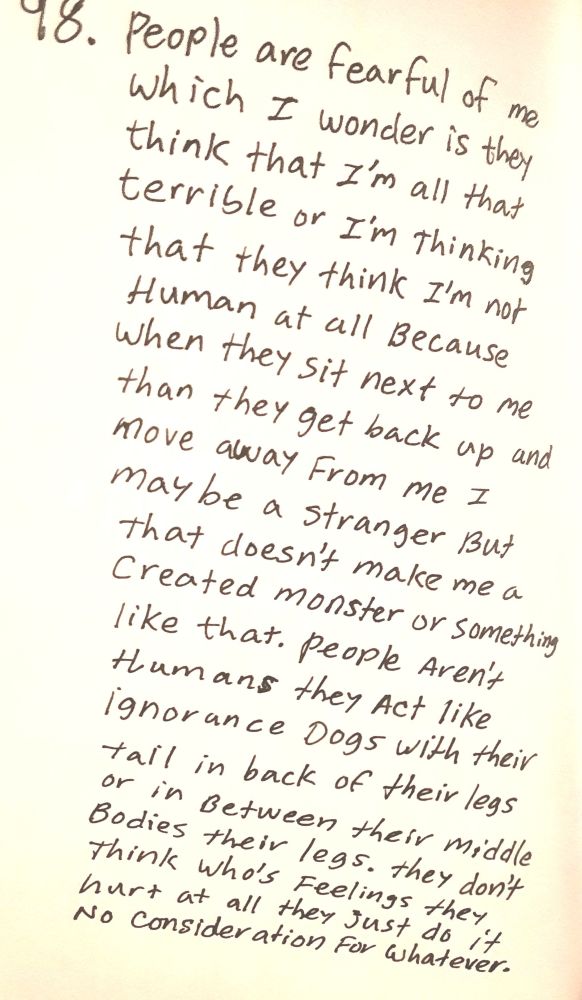 98. People are fearful of me
which I wonder is they
think that I'm all that
terrible or I'm Thinking
that they think I'm not
Human at all Because
when they sit next to me
than they get back up and
move away From me I
maybe a stranger But
that doesn't make me a
Created monster or something
like that. People Aren't
Humans they Act like
ignorance Dogs with their
tail in back of their legs
or in Between their middle
Bodies their legs. they don't
Think who's Feelings they
hurt at all they just do it
No Consideration For whatever.